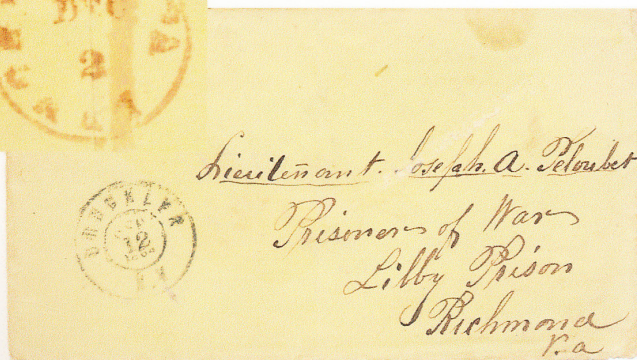 DEC
2
BROOKLYN
Lieutenant. Joseph. A. Peloubet
Prisoner of War
Libby Prison
Richmond
Va